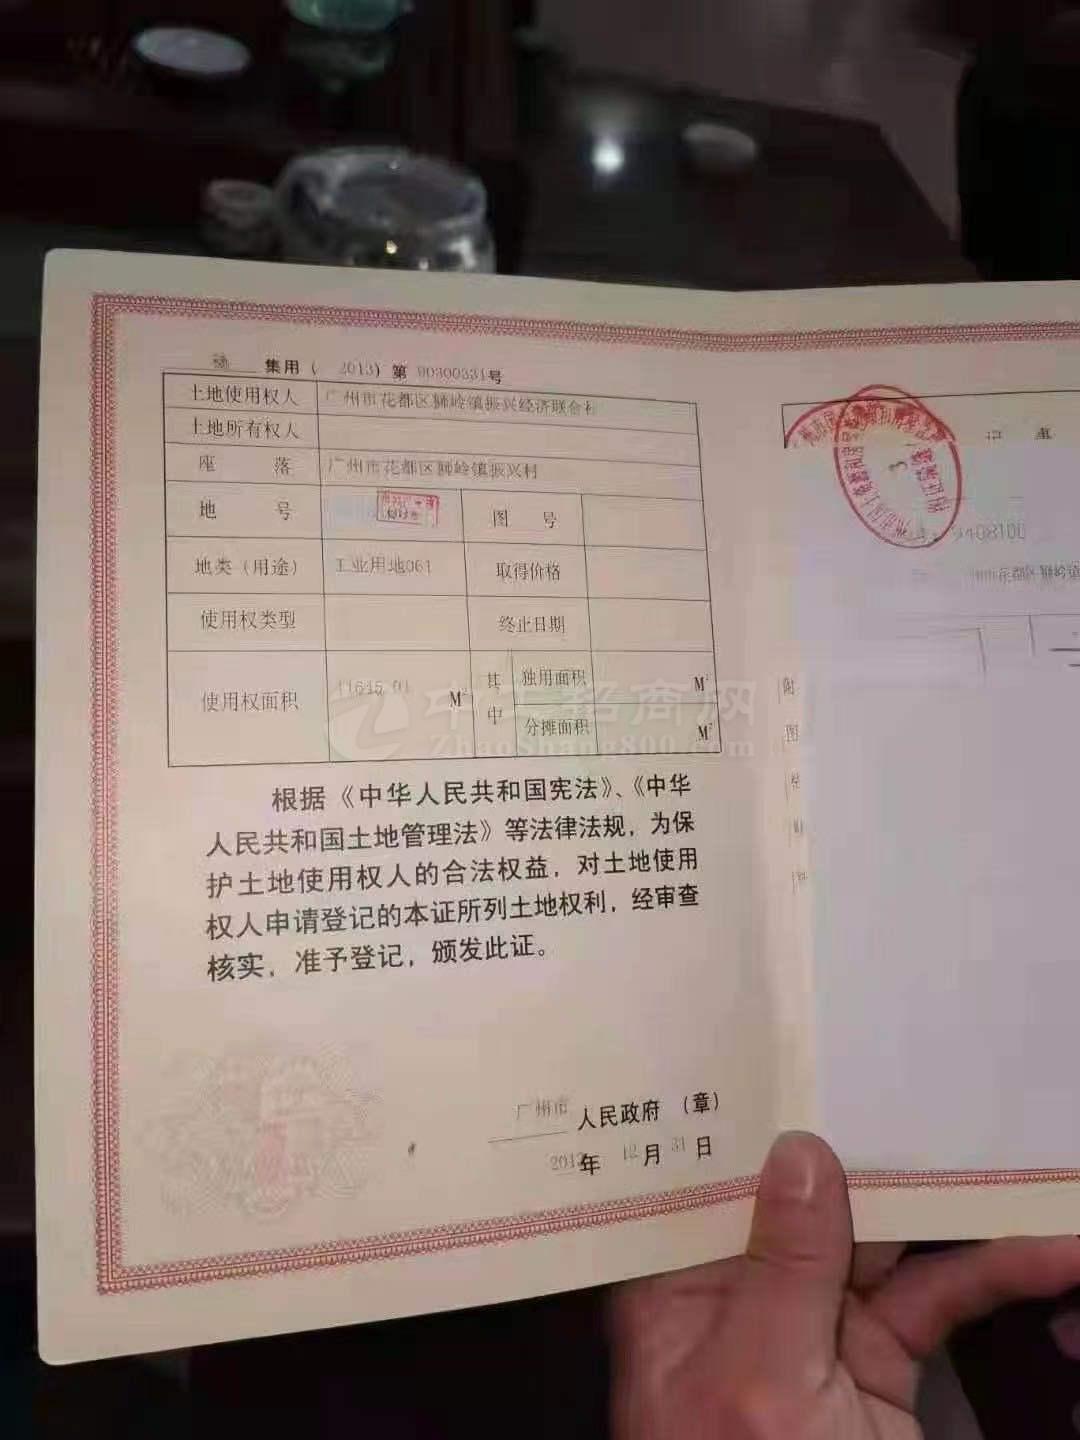 集用( 2013)第 90300331号
土地使用权人 广州市花都区狮岭镇振兴经济联合社
土地所有权人
座 落 广州市花都区狮岭镇振兴村
地 号 图 号
地类(用途) 工业用地061 取得价格
使用权类型 终止日期
使用权面积 11645.01 M² 其中 独用面积 M²
分摊面积 M²
中工招商网
ZhaoShang800.com
根据《中华人民共和国宪法》、《中华
人民共和国土地管理法》等法律法规，为保
护土地使用权人的合法权益，对土地使用
权人申请登记的本证所列土地权利，经审查
核实，准予登记，颁发此证。
广州市 人民政府 (章)
2013年 12月 31日
记 事
9408100
花都区狮岭镇
附
图